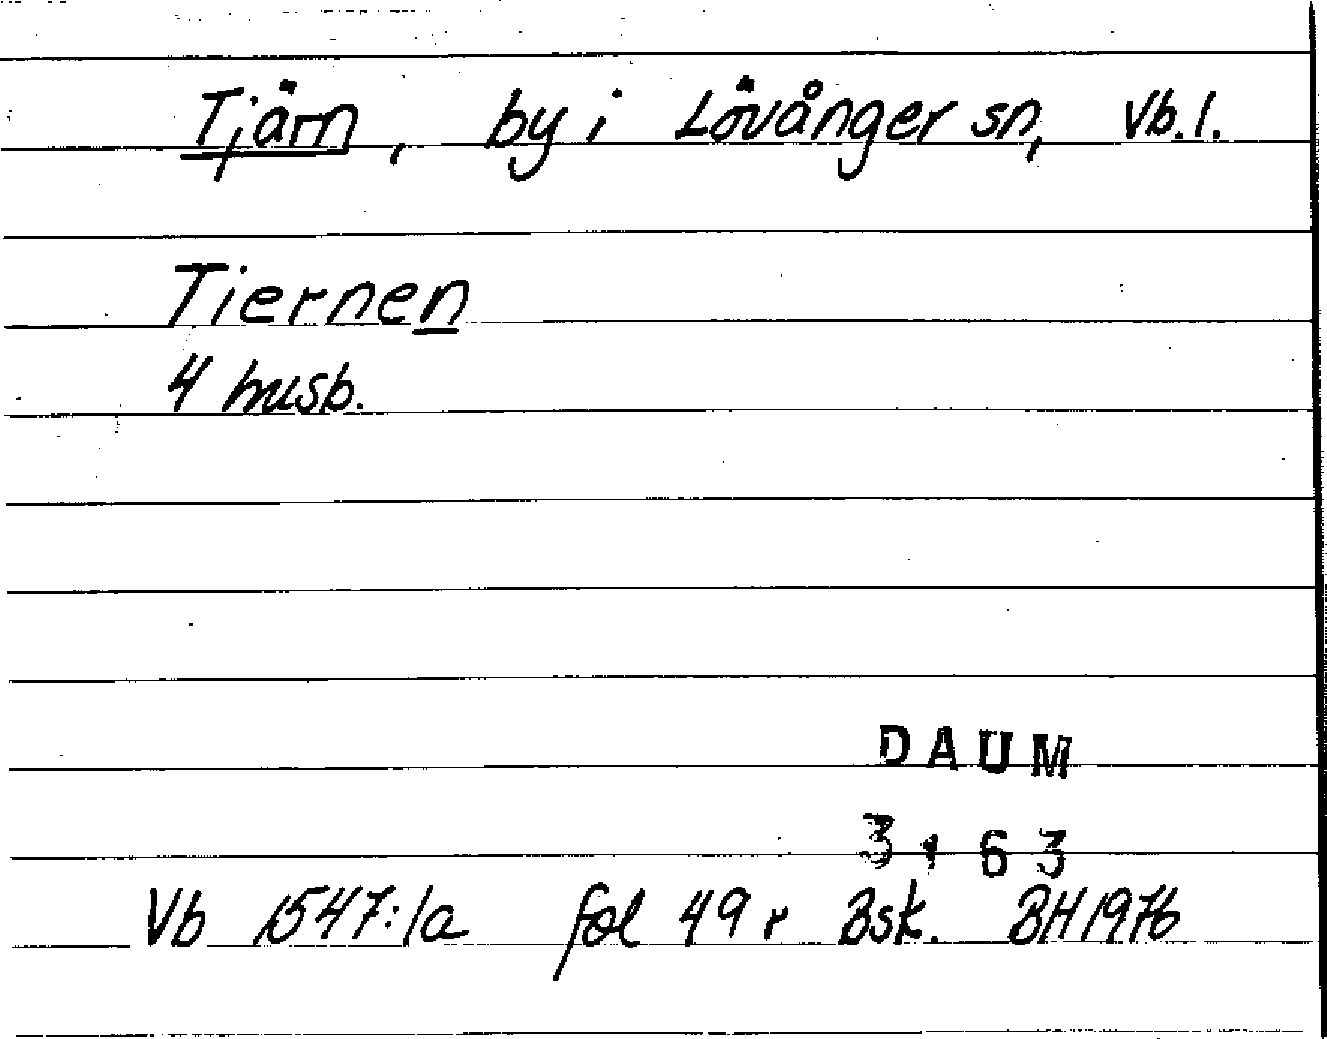 Tjärn, by i Lövånger sn, Vb. l.
Tiernen
4 husb.
DAUM
3163
Vb 1547:1a fol 49 r Bsk. BH 1976